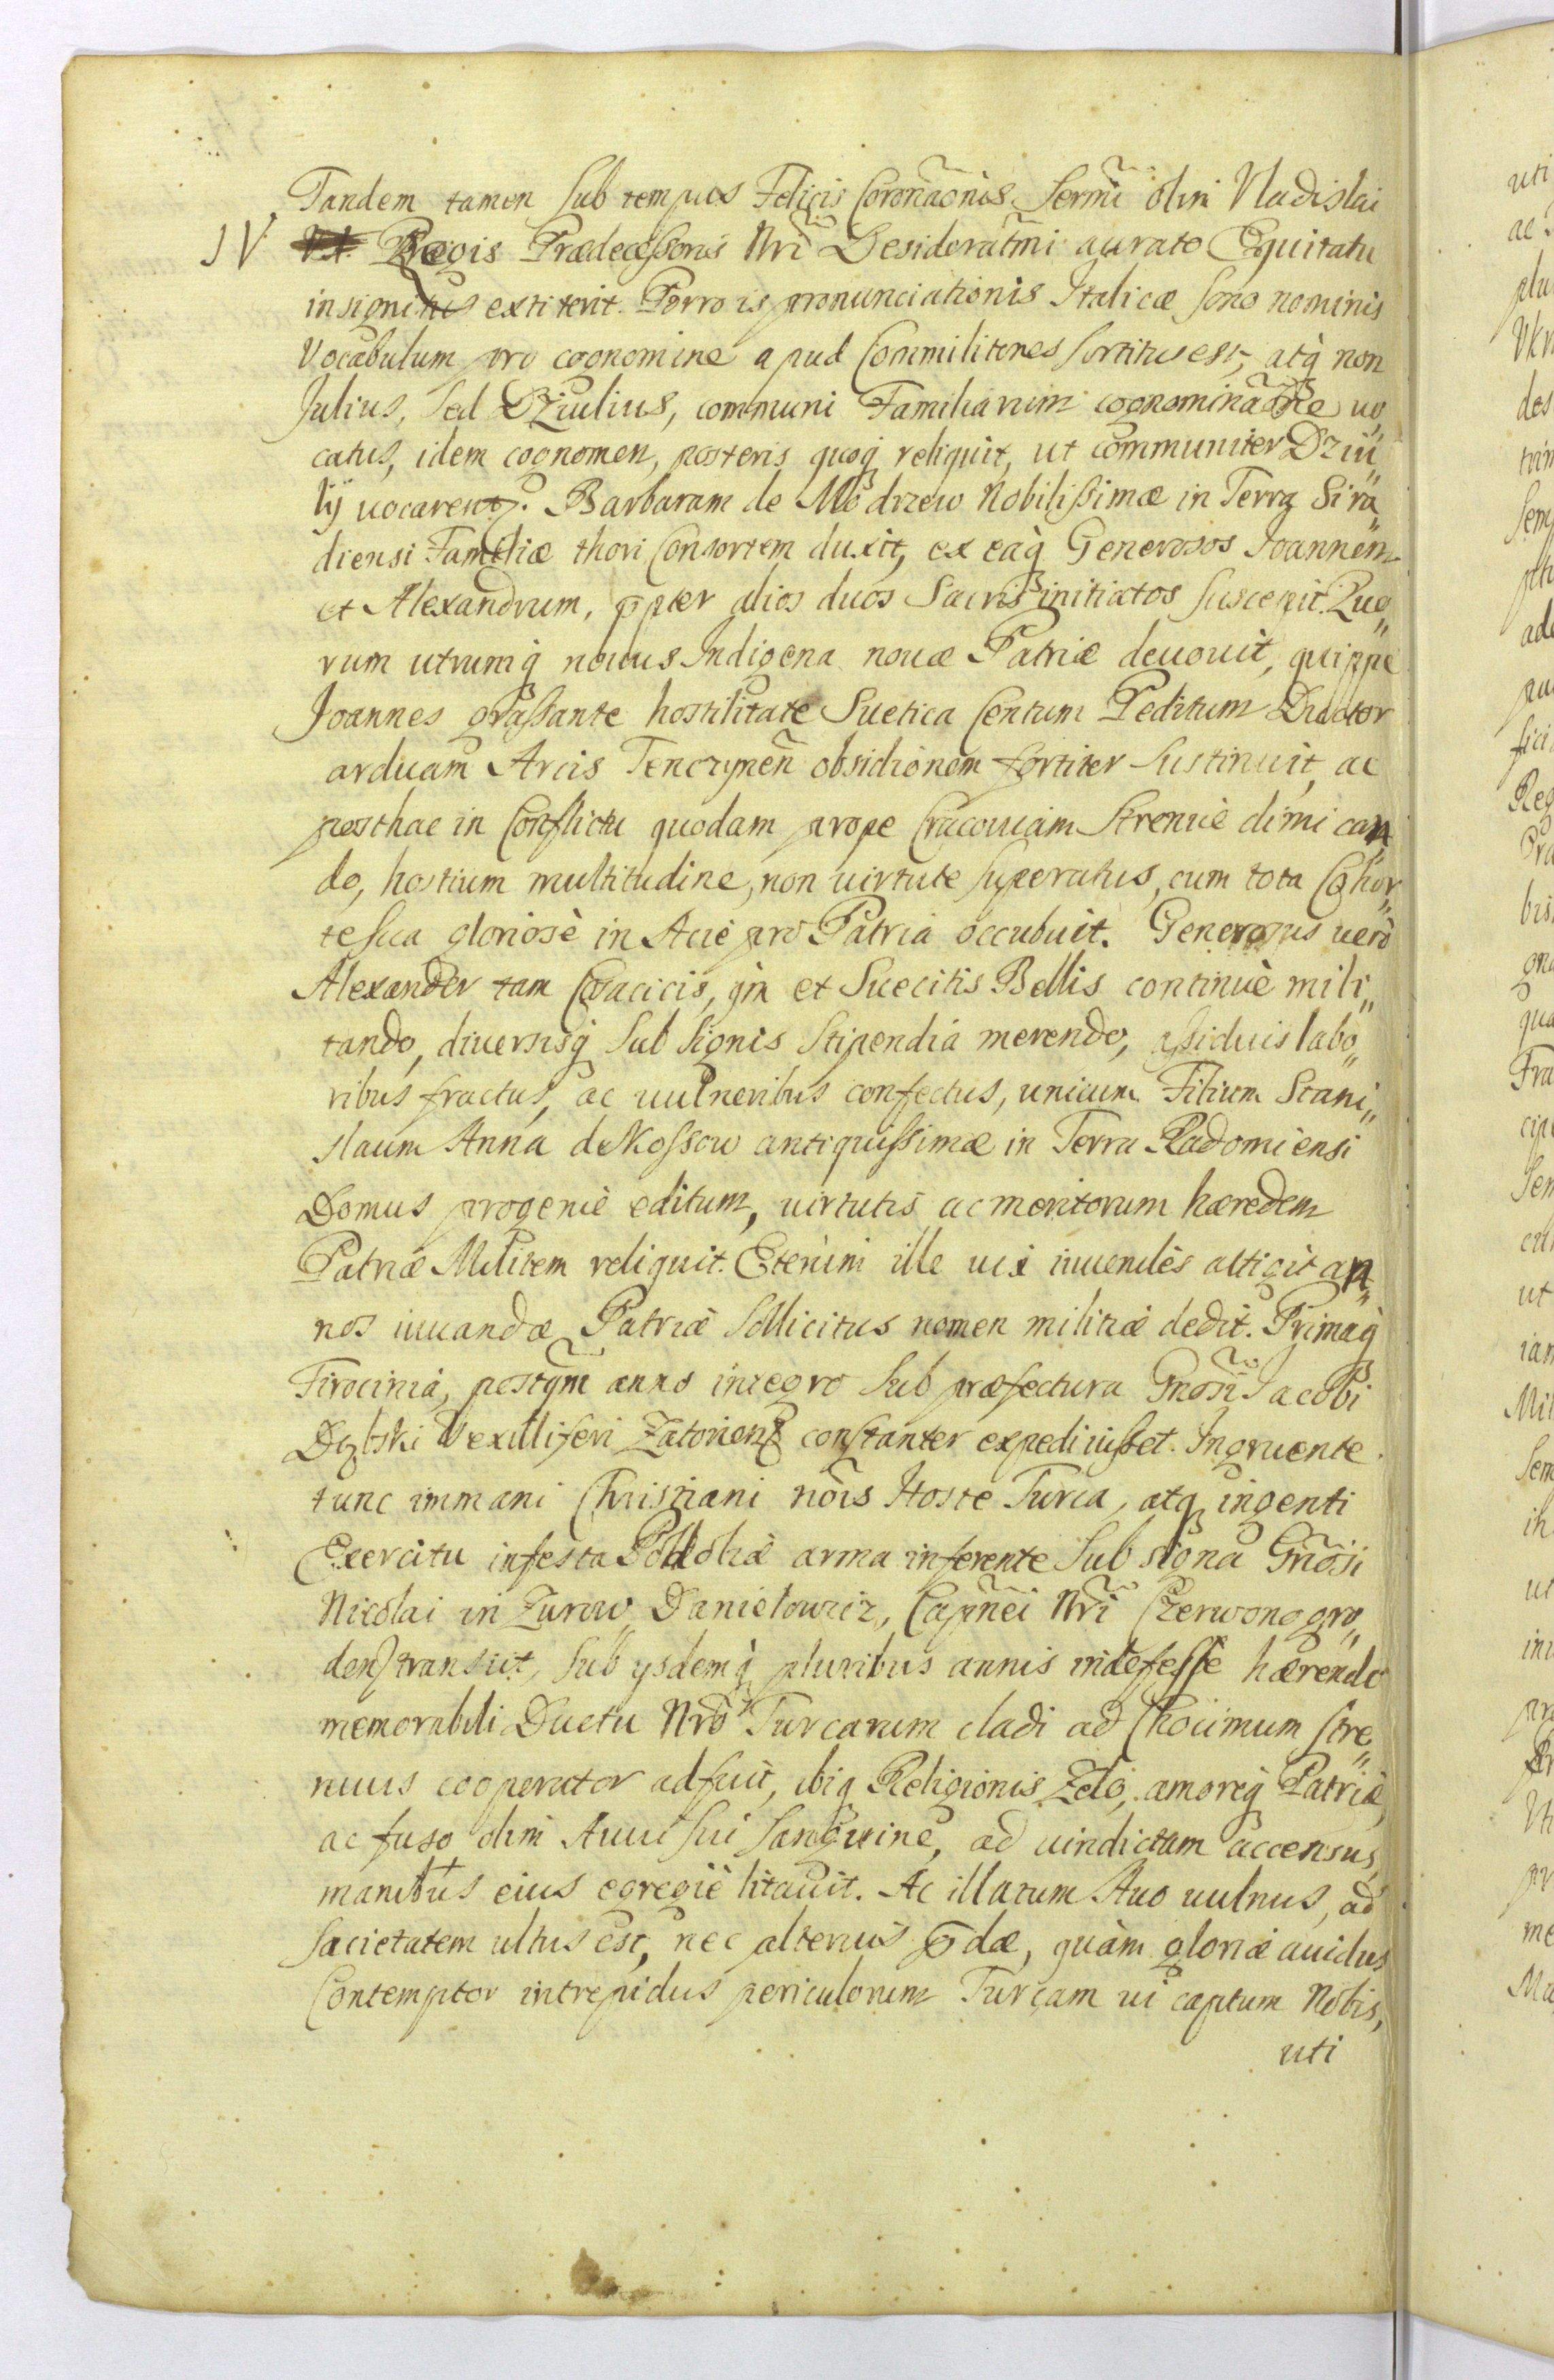 Tandem tamen sub tempus Felicis Coronaõnis Sermi olim Vladislai
IV Regis Prædecessoris Nri Desideratmi aurato Equitatu
insignitus extiterit. Porro is pronunciationis Italicæ sono nominis
Vocabulum pro cognomine apud Commilitones sortitus est, atq non
Julius, sed Dziulius, communi Familiarum cognominaõne uo„
catus, idem cognomen, posteris quoq reliquit, ut communiter Dziu„
lij uocarent. Barbaram de Modrzew Nobilissimæ in Terra Sira„
diensi Familiæ thori Consortem duxit, ex eaq Generosos Joannem
et Alexandrum, ppter alios duos Sacris initiatos suscepit. Quo„
rum utrumq nouus Indigena nouæ Patriæ deuouit, quippe
Joannes grassante hostilitate Suetica Centum Peditum Ductor
arduam Arcis Tenczynen obsidionem fortiter sustinuit, ac
posthac in Conflictu quodam prope Cracouiam strenuè dimican„
do, hostium multitudine, non uirtute superatus, cum tota Cohor„
te sua gloriosè in Acie pro Patria occubuit. Generosus uerò
Alexander tam Cosacicis, qm et Suecitis Bellis continuè mili„
tando, diuersisq sub signis stipendia merendo, assiduis labo„
ribus fractus, ac uulneribus confectus, unicum Filium Stani„
slaum Anna de Kossow antiquissimæ in Terra Radomiensi
Domus progenie editum, uirtutis ac meritorum hæredem
Patriæ Militem reliquit. Etenim ille uix iuueniles attigit an„
nos iuuandæ Patriæ sollicitus nomen militiæ dedit. Primaq
Tirocinia, postqm anno integro sub præfectura Gnosi Jacobi
Dębski Vexilliferi Zatorien constanter expediuisset. Ingruente
tunc immani Christiani nõis Hoste Turca, atq ingenti
Exercitu infesta Poloniæ arma inferente sub signa Gnosi
Nicolai in Zurow Danielowicz, Capnei Nri Czerwonogro„
den transiit, sub ysdemq pluribus annis indefessè hærendo
memorabili Ductu Nrõ Turcarum cladi ad Chocimum stre„
nuus cooperator adfuit, ibiq Religionis Zelo, amoreq Patriæ,
ac fuso olim Aui sui sanguine, ad uindictam accensus,
manibus eius egregiè litauit. Ac illatum Auo uulnus, ad
sacietatem ultus est, nec alterius pdæ, quàm gloriæ auidus
Contemptor intrepidus periculorum Turcam ui captum Nobis,
uti